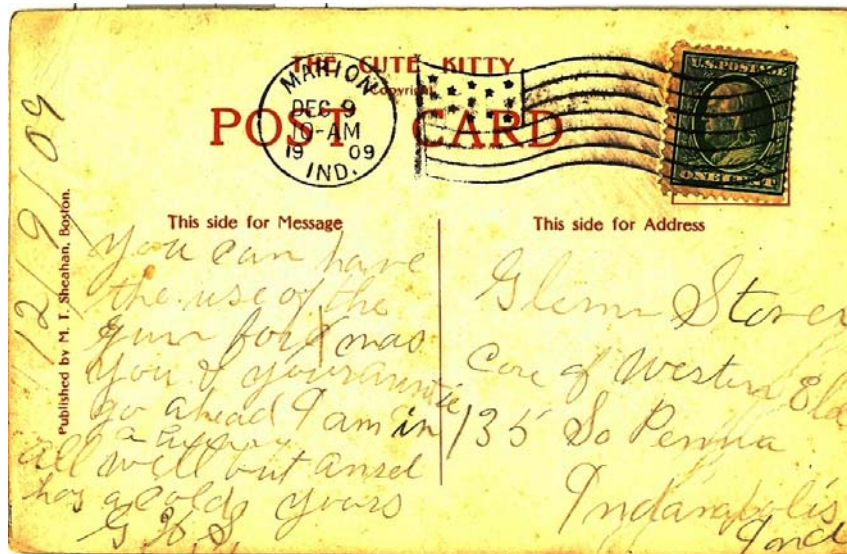 THE CUTE KITTY
Copyright
POST CARD
MARION
DEC 9
10-AM
19 09
IND.
U.S. POSTAGE
ONE CENT
12/9/09
Published by M. T. Sheahan, Boston.
This side for Message
You can have
the use of the
gun for Xmas
you & your auntie
go ahead I am in
a
all well but ansel
has a cold yours
G W S
This side for Address
Glenn Stover
Care of Western Eld
135 So Penna
Indanapolis
Ind